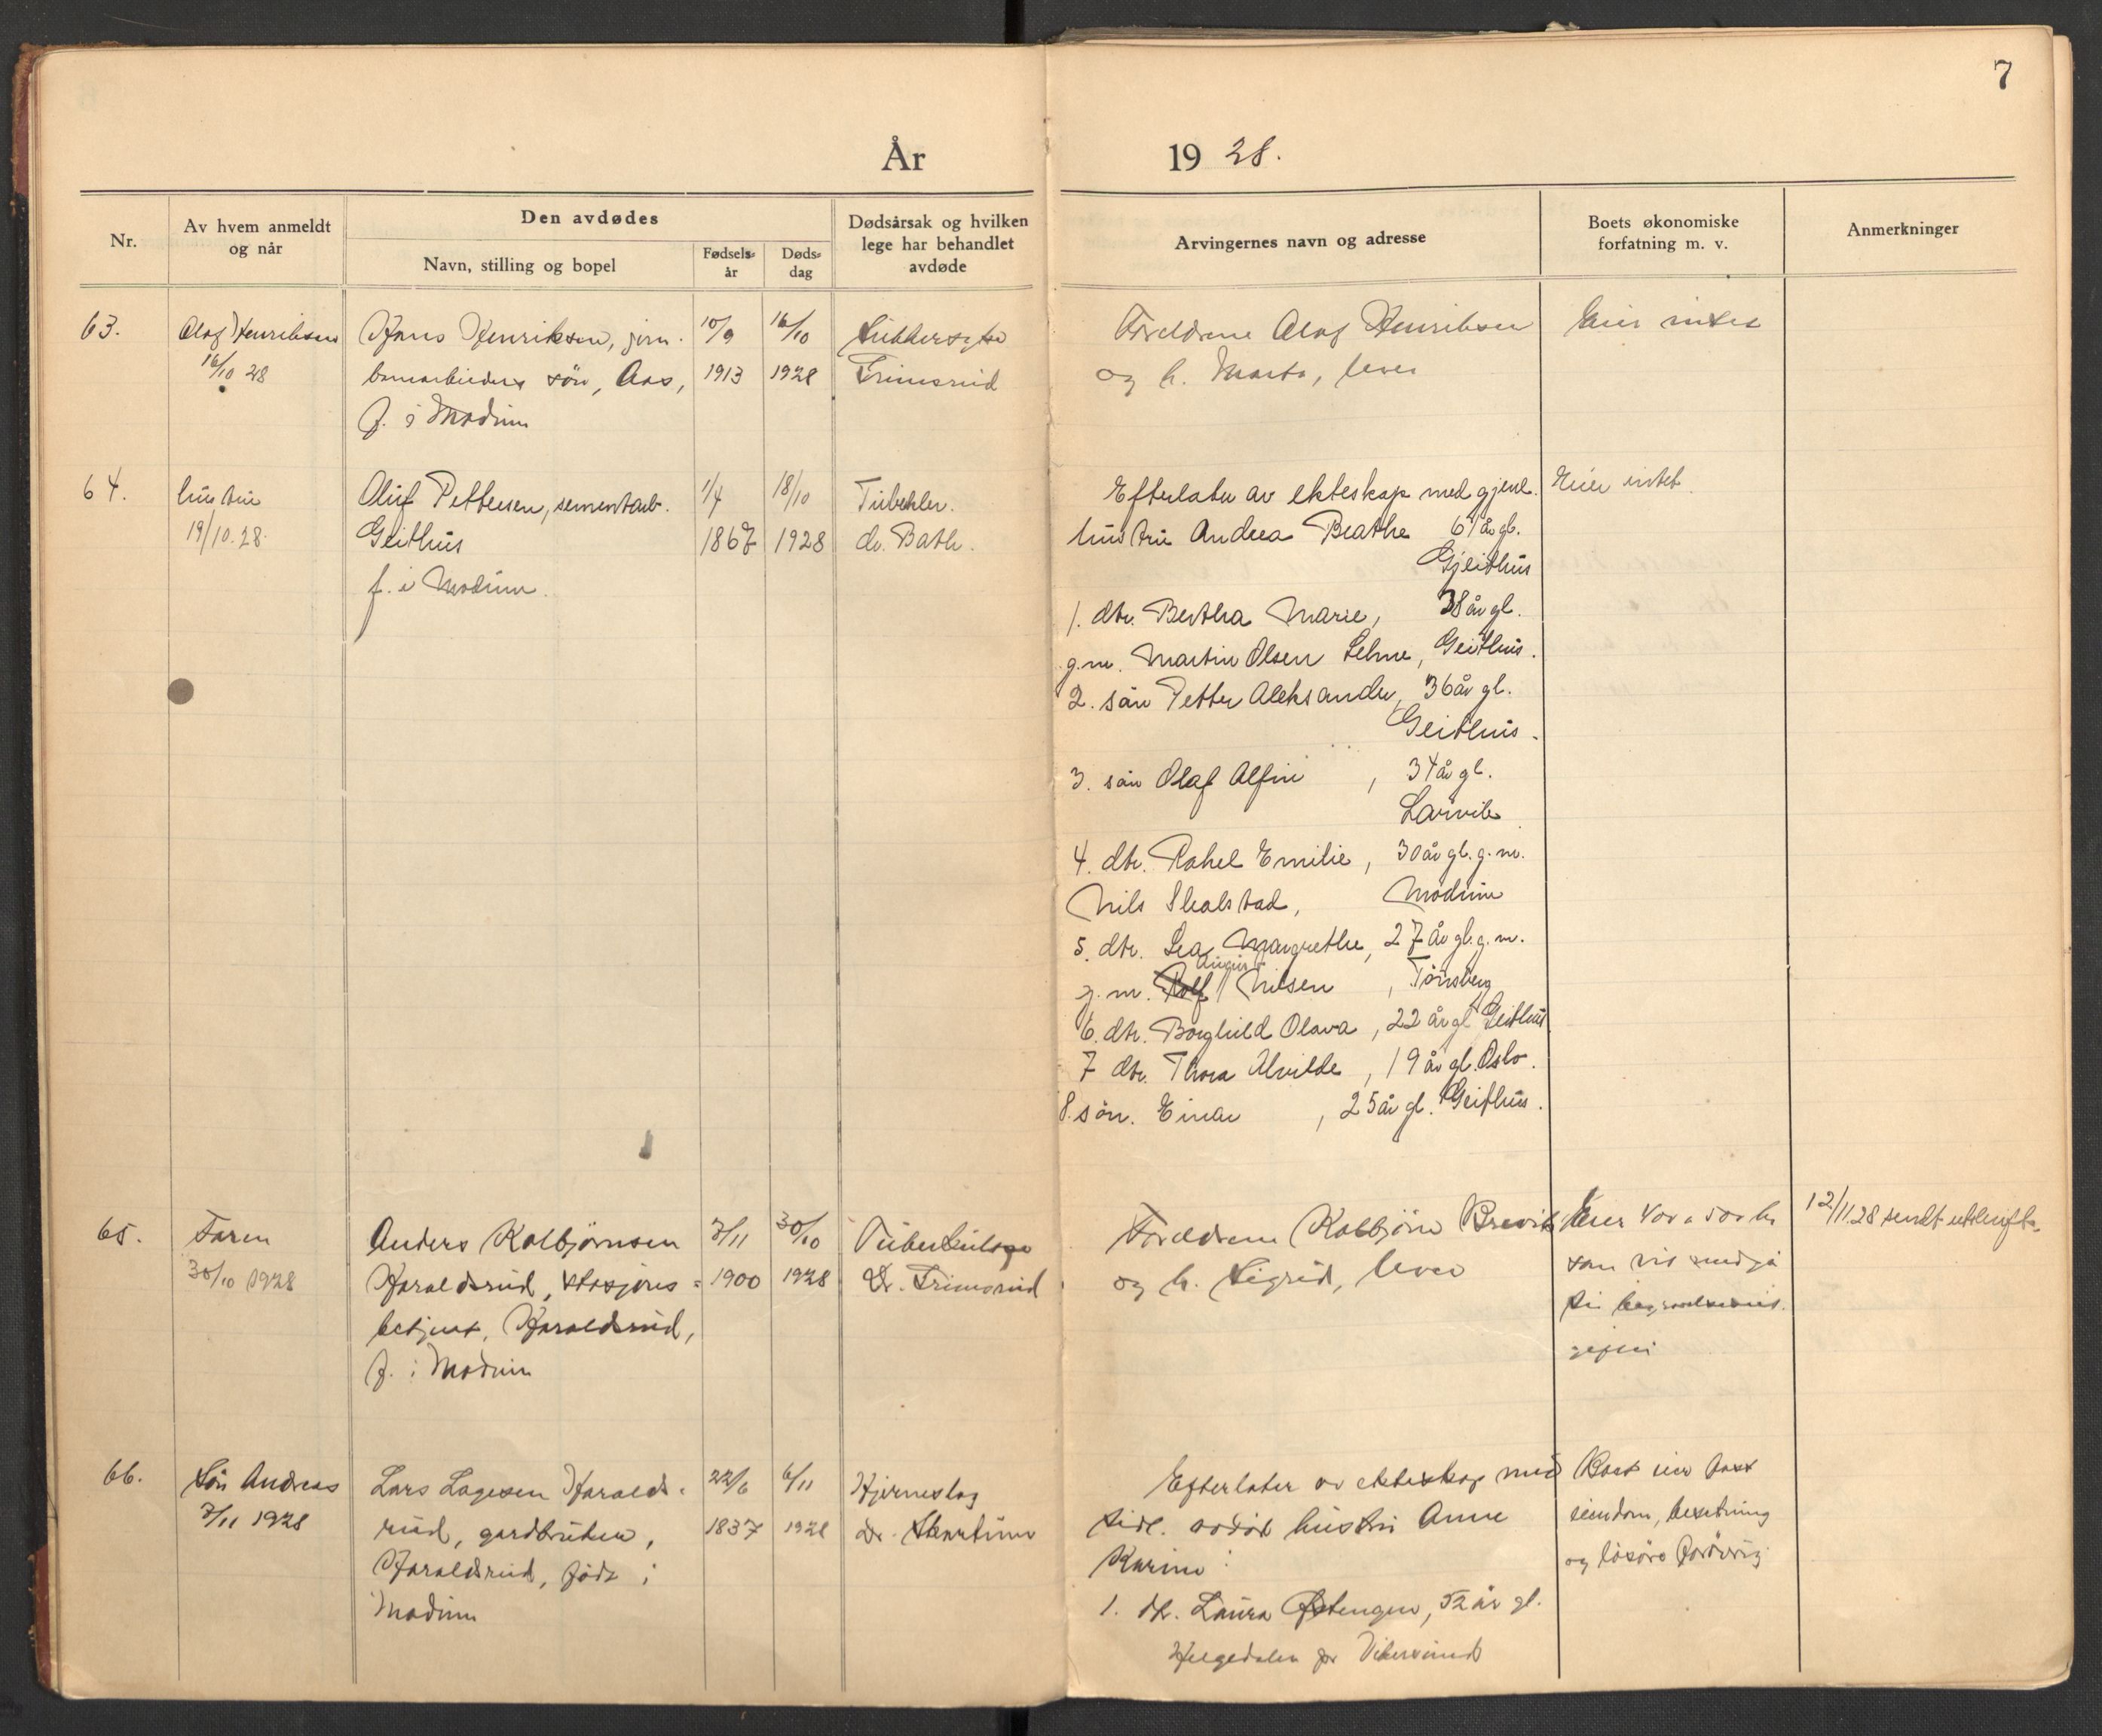 7
År 1928.
Nr.
Av hvem anmeldt
og når
Den avdødes
Navn, stilling og bopel
Fødsels-
år
Døds-
dag
Dødsårsak og hvilken
lege har behandlet
avdøde
Arvingernes navn og adresse
Boets økonomiske
forfatning m. v.
Anmerkninger
63.
Olaf Henriksen
16/10 28
Hans Henriksen, jern-
banearbeiders søn, Aas,
f. i Modum
10/9
1913
16/10
1928
Sukkersyke
Trimsrud
Foreldrene Olaf Henriksen
og h. Marta, lever
Eier intet
64.
hustru
19/10.28.
Oluf Pettersen, sementarb.
Geithus
f. i Modum.
1/4
1867
18/10
1928
Tuberkler.
dr. Bath.
Efterlater av ekteskap med gjenl.
hustru Andrea Beathe 61 år gl.
Gjeithus
1. dtr. Bertha Marie, 38 år gl.
g.m. Martin Olsen Lehne, Geithus.
2. søn Petter Aleksander, 36 år gl.
Geithus.
3. søn Olaf Alfin, 34 år gl.
Larvik
4. dtr. Rakel Emilie, 30 år gl. g.m.
Nils Skalstad, Modum
5. dtr. Lea Margrethe, 27 år gl. g.m.
August
g.m. Rolf Nilsen, Tønsberg
6. dtr. Borghild Olava, 22 år gl Geithus
7 dtr. Thora Alvilde, 19 år gl. Oslo.
8. søn. Einar, 25 år gl. Geithus.
Eier intet.
65.
Faren
30/10 1928
Anders Kolbjørnsen
Haraldsrud, stasjons-
betjent, Haraldsrud,
f. i Modum
3/11
1900
30/10
1928
Tuberkulose
Dr. Trimsrud
Foreldrene Kolbjørn Brevik
og h. Sigrid, lever
Eier 400 a 500 kr
som vil medgå
til
12/11 28 sendt
66.
Søn Andreas
7/11 1928
Lars Lagesen Haralds-
rud, gardbruker,
Haraldsrud, født i
Modum
22/6
1837
6/11
1928
Hjerneslag
Dr. Stenrtum
Efterlater av ekteskap med
tidl. avdød hustru Anne
Karine:
1. dt. Laura Østengen, 52 år gl.
Helgedalen pr Vikersund
Boet eier fast
eiendom, besetning
og løsøre forøvrig